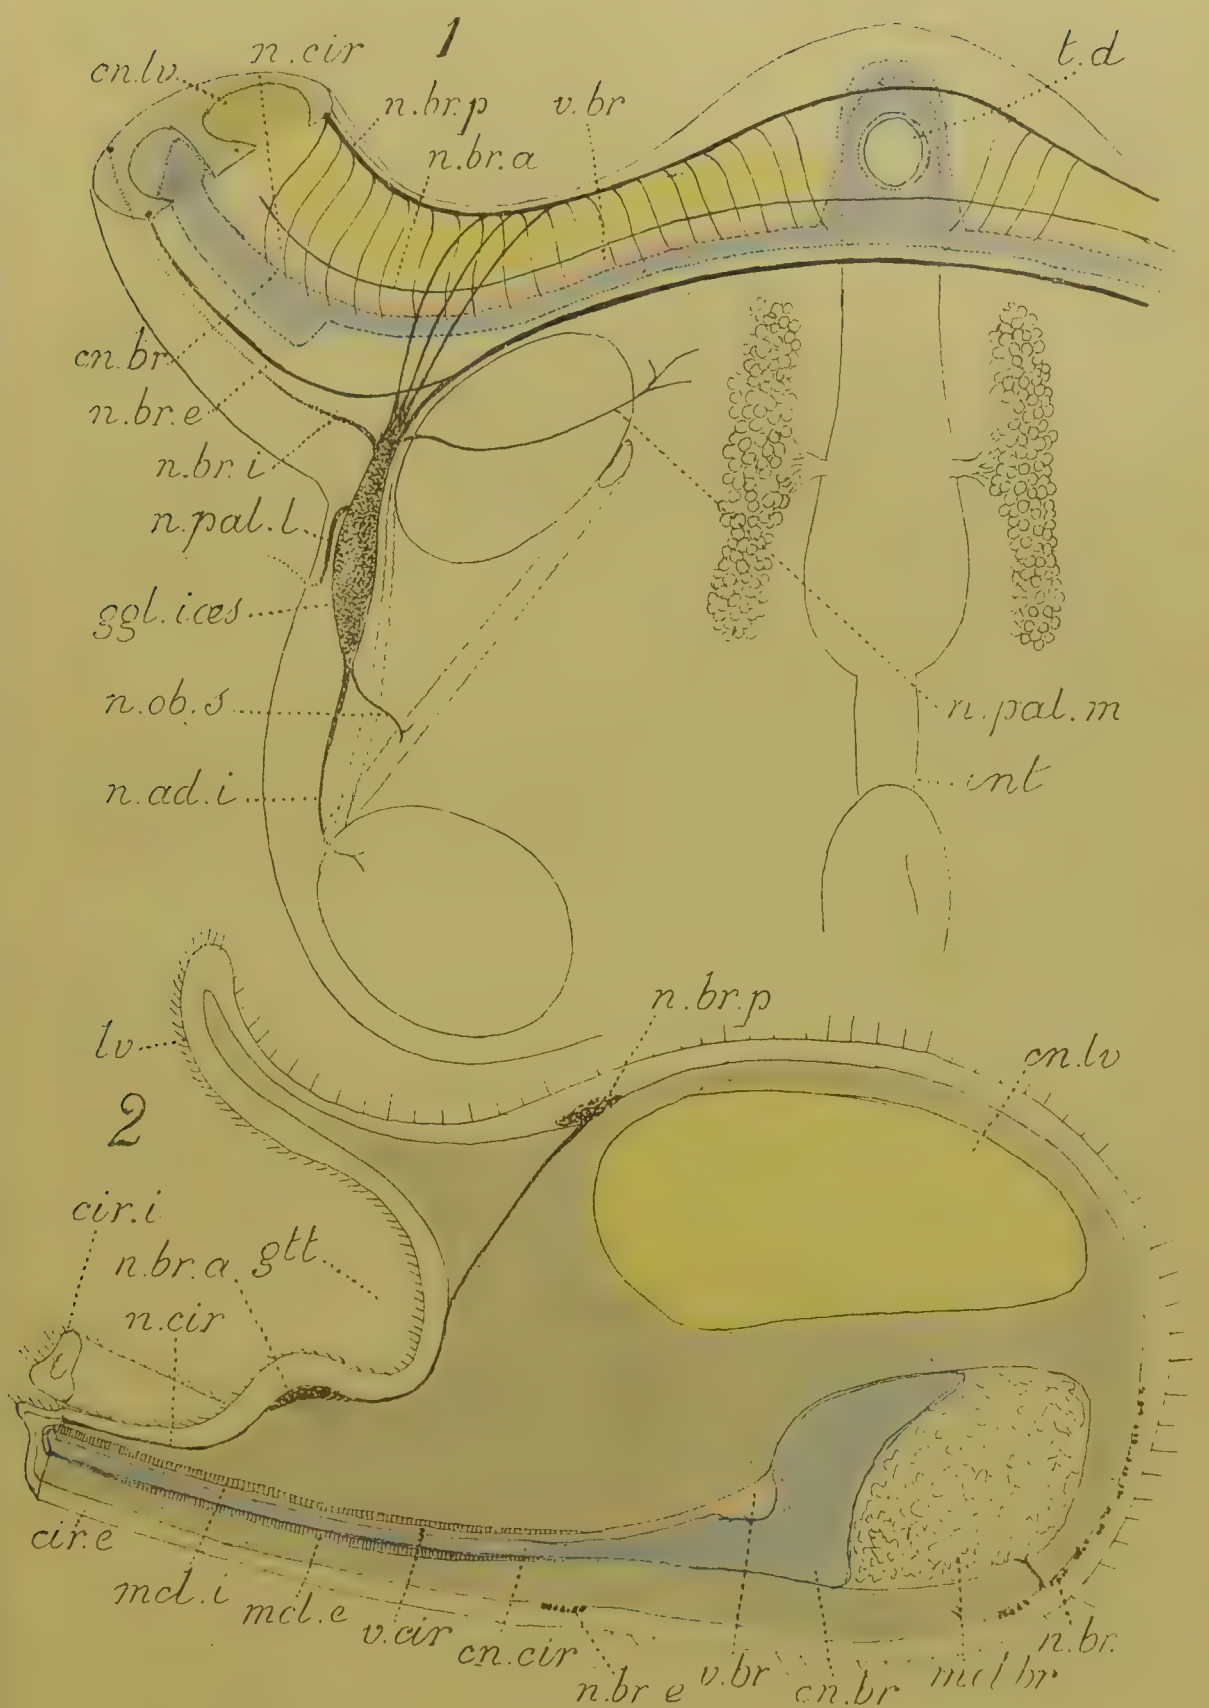 1
n.cir
cn.lv
t.d
n.br.p
v.br
n.br.a
cn.br
n.br.e
n.br.i
n.pal.l
ggl.iœs
n.ob.s
n.pal.m
n.ad.i
int
n.br.p
lv
cn.lv
2
cir.i
n.br.a
gtt
n.cir
cir.e
mcl.i
mcl.e
v.cir
cn.cir
n.br e
v.br
cn.br
mcl br
n.br.